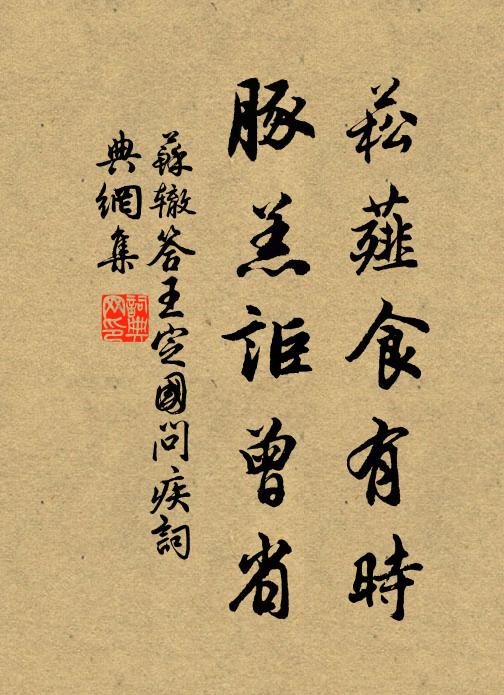 菘薤食有時
豚羔詎曾省
蘇轍答王定國問疾詞
典網集
詞典網印